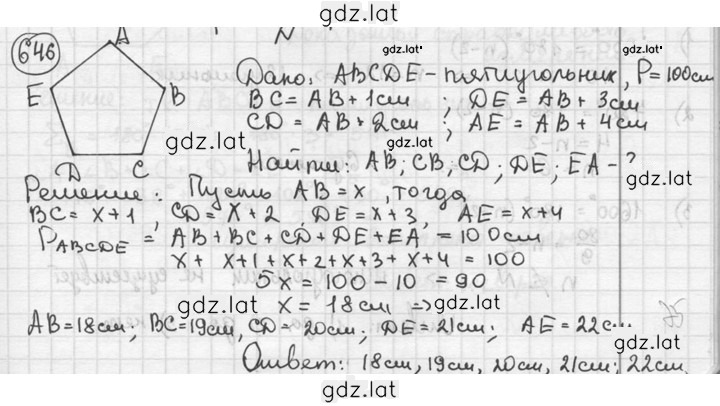 gdz.lat
646
A
E
B
D
C
gdz.lat
Дано: ABCDE - пятиугольник, P = 100см
BC = AB + 1см ; DE = AB + 3см
gdz.lat
CD = AB + 2см ; AE = AB + 4см
gdz.lat
gdz.lat
Найти: AB; CB, CD; DE; EA - ?
gdz.lat
Решение: Пусть AB = x, тогда
BC = x+1, CD = x+2 DE = x+3, AE = x+4
P ABCDE = AB + BC + CD + DE + EA = 100см
gdz.lat
x + x+1 + x+2 + x+3 + x+4 = 100
5x = 100 - 10 = 90
gdz.lat
x = 18см =>
gdz.lat
AB = 18см; BC = 19см, CD = 20см; DE = 21см; AE = 22с
gdz.lat
Ответ: 18см, 19см, 20см, 21см; 22см
gdz.lat
gdz.lat